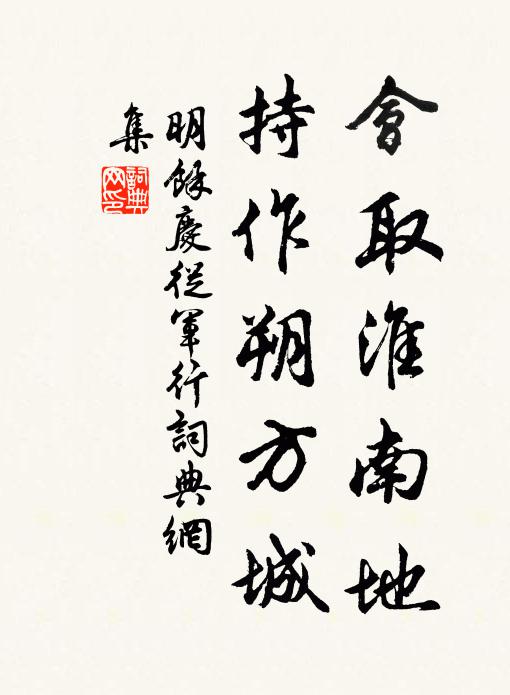 會取淮南地
持作朔方城
明餘慶從軍行詞典網
集
詞典
网印